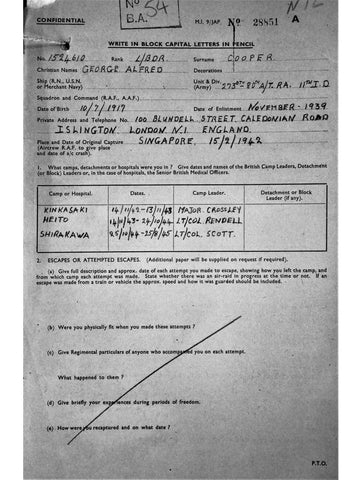 No 54
B.A.
NIL
CONFIDENTIAL M.I. 9/JAP. No 28851 A
WRITE IN BLOCK CAPITAL LETTERS IN PENCIL
No. 1524610 Rank L/BDR Surname COOPER
Christian Names GEORGE ALFRED Decorations
Ship (R.N., U.S.N. or Merchant Navy) Unit & Div. (Army) A/T. RA. 11TH I.D
Squadron and Command (R.A.F., A.A.F.)
Date of Birth 10/7/1917 Date of Enlistment NOVEMBER - 1939
Private Address and Telephone No. 100 BLUNDELL STREET CALEDONIAN ROAD
ISLINGTON. LONDON N.1. ENGLAND.
Place and Date of Original Capture SINGAPORE. 15/2/1942
(Aircrew R.A.F. to give place
and date of a/c crash).
1. What camps, detachments or hospitals were you in? Give dates and names of the British Camp Leaders, Detachment
(or Block) Leaders or, in the case of hospitals, the Senior British Medical Officers.
Camp or Hospital. Dates. Camp Leader. Detachment or Block Leader (if any).
KINKASAKI 14/11/42-13/11/43 MAJOR. CROSSLEY
HEITO 14/11/43-24/10/44 LT/COL RENDELL
SHIRAKAWA 25/10/44-25/8/45 LT/COL. SCOTT.
2. ESCAPES OR ATTEMPTED ESCAPES. (Additional paper will be supplied on request if required).
(a) Give full description and approx. date of each attempt you made to escape, showing how you left the camp, and
from which camp each attempt was made. State whether there was an air-raid in progress at the time or not. If an
escape was made from a train or vehicle the approx. speed and how it was guarded should be included.
(b) Were you physically fit when you made these attempts?
(c) Give Regimental particulars of anyone who accompanied you on each attempt.
What happened to them?
(d) Give briefly your experiences during periods of freedom.
(e) How were you recaptured and on what date?
P.T.O.